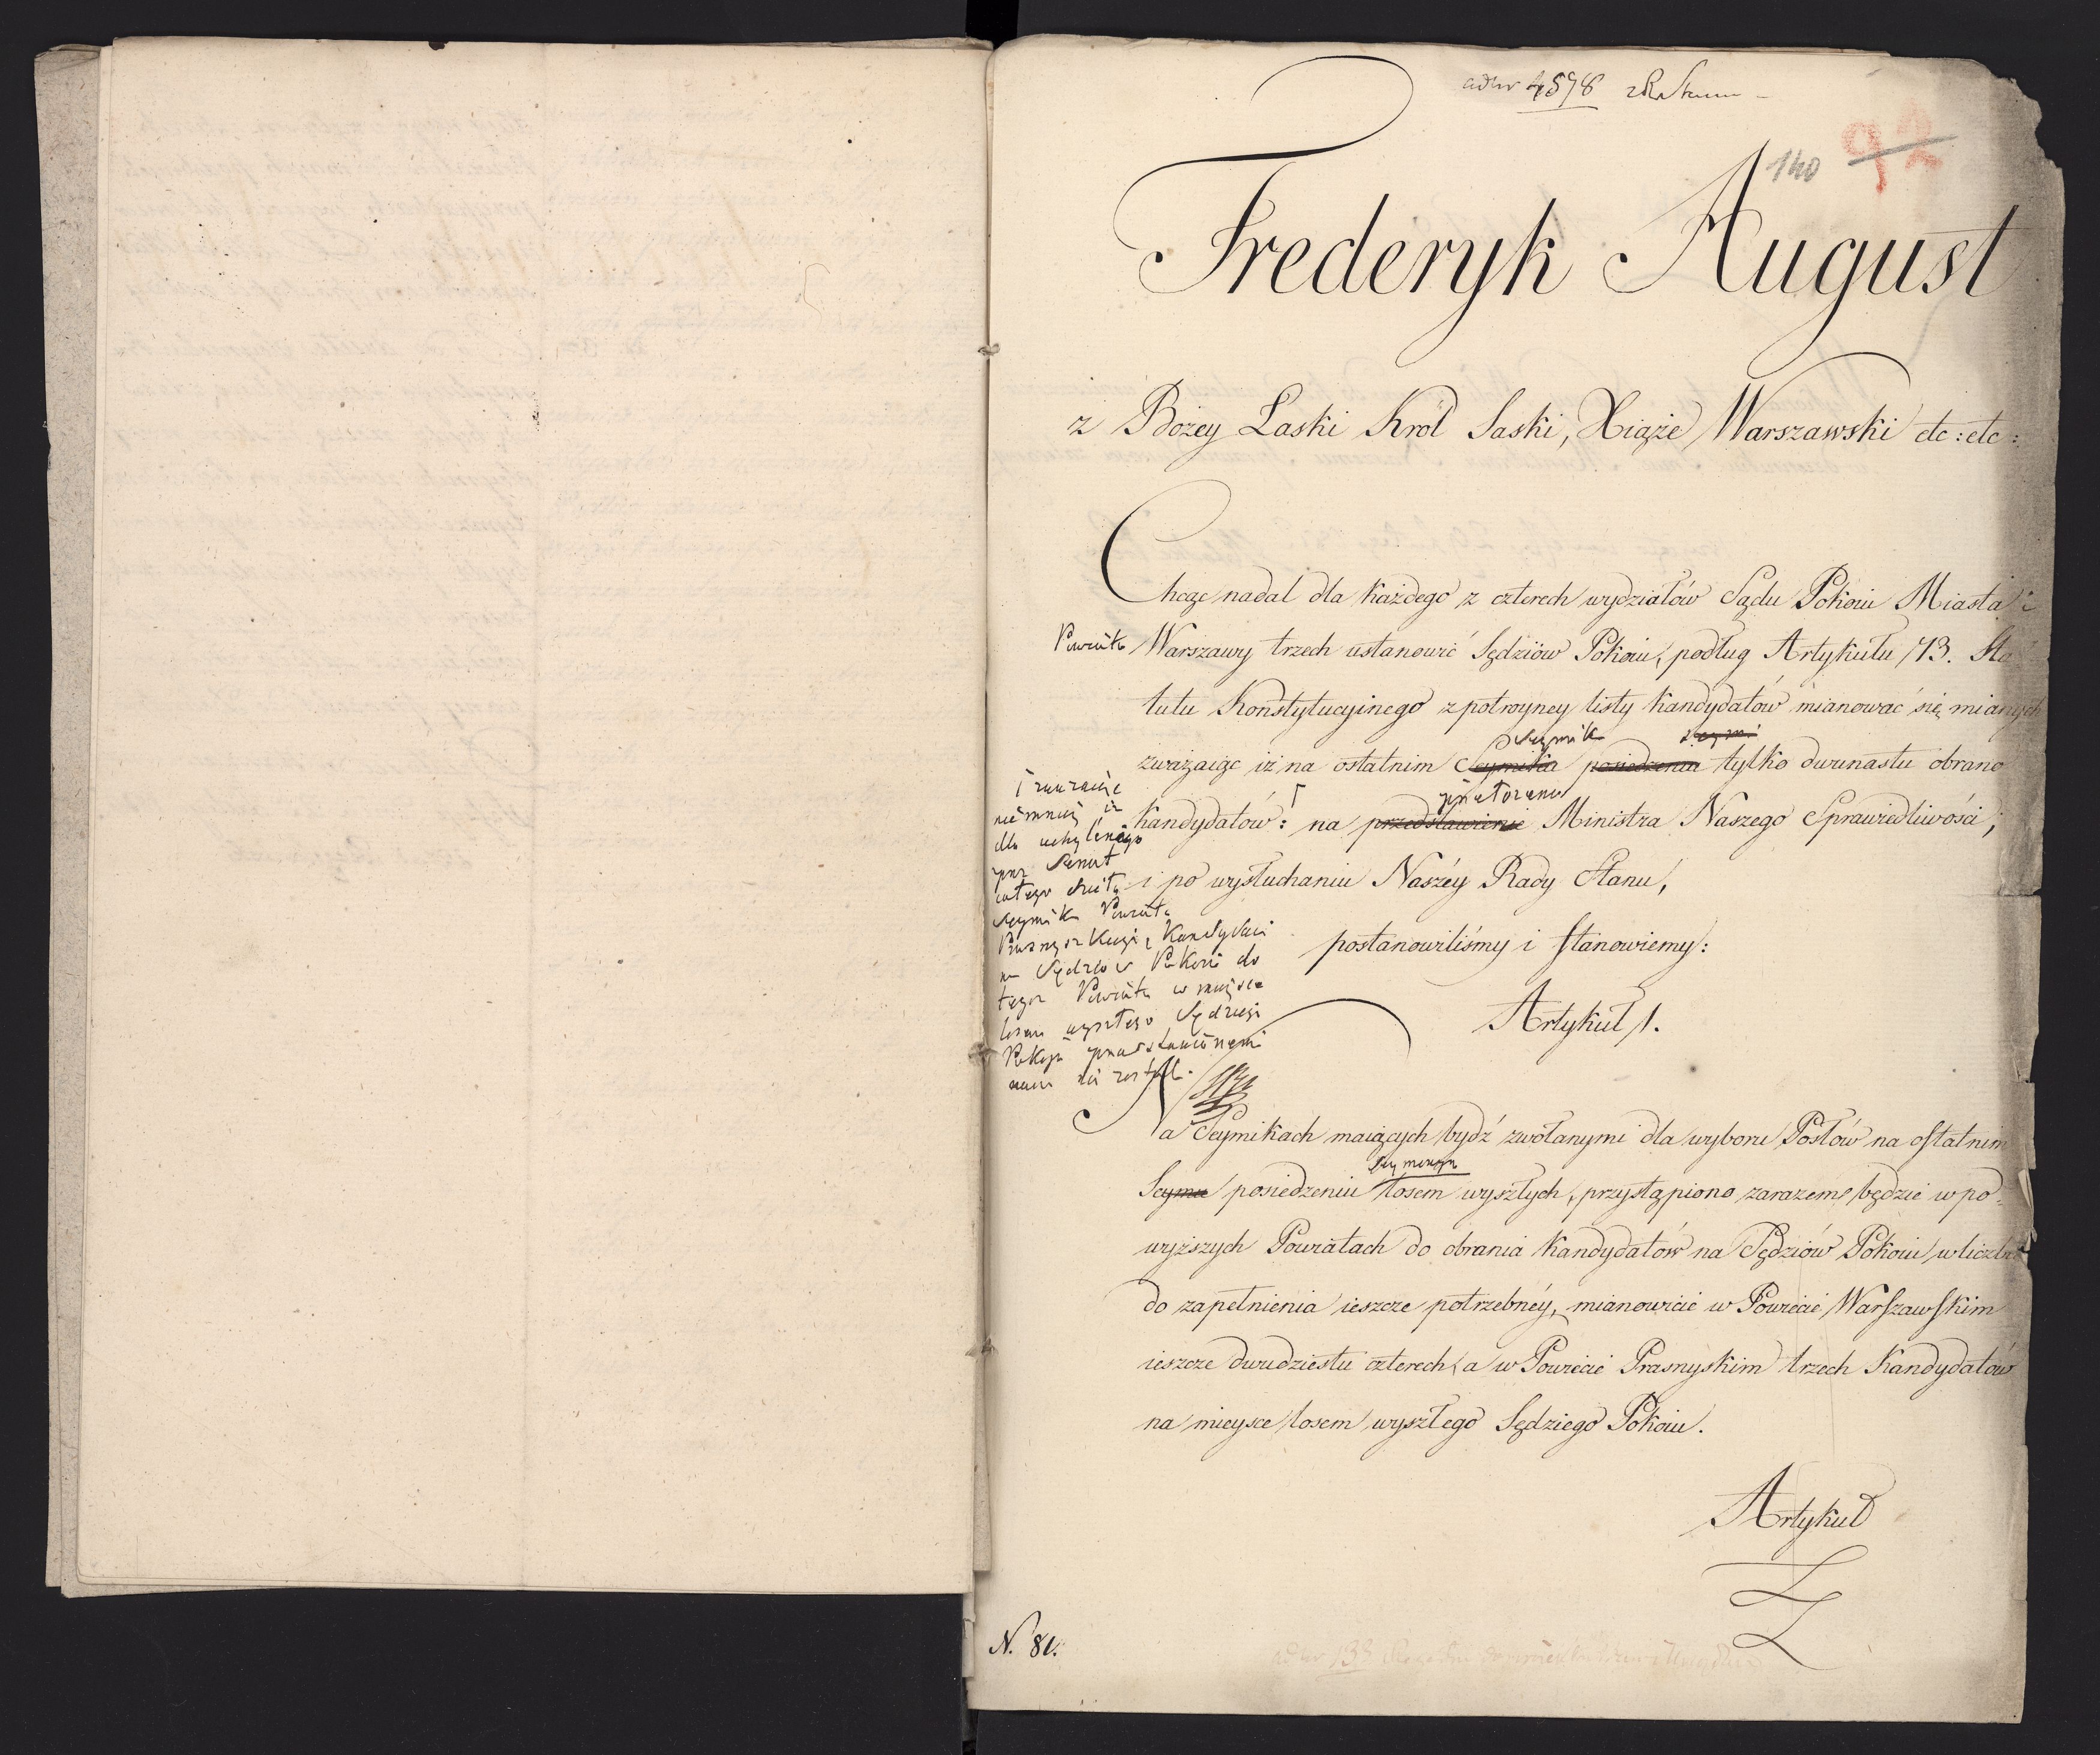 ad nr 4578
140 92
Frederyk August
z Bożey Łaski Król Saski, Xiąże Warszawski etc: etc:
Chcąc nadal dla każdego z czterech wydziałów Sądu Pokoiu Miasta i
Powiatu Warszawy trzech ustanowić Sędziów Pokoiu, podług Artykułu 73. Sta
tutu Konstytucyinego z potroyney listy kandydatów mianować się mianych
Seymik
zważaiąc iż na ostatnim Seymiku posiedzeniu tylko dwunastu obrano
przełożenie
kandydatów: na przedstawienie Ministra Naszego Sprawiedliwości,
i po wysłuchaniu Naszéy Rady Stanu,
i zważaiąc
niemniéy iż
dla uchylenego
przez Senat
całego dzieła
Seymiku Powiatu
Prasnyskiego, Kandydaci
na Sędziów Pokoiu do
tegoż Powiatu w mieysce
losem wyszłego Sędziego
Pokoiu przedstawionemi
nam nie zostali.
postanowiliśmy i stanowiemy:
Artykuł 1.
Na Seymikach maiących bydź zwołanymi dla wyboru Posłów na ostatnim
seymowym
Seymu posiedzeniu losem wyszłych, przystąpiono zarazem będzie w po-
wyższych Powiatach do obrania Kandydatów na Sędziów Pokoiu w liczbie
do zapełnienia ieszcze potrzebnéy, mianowicie w Powiecie Warszawskim
ieszcze dwudziestu czterech, a w Powiecie Prasnyskim trzech Kandydatów
na mieysce losem wyszłego Sędziego Pokoiu.
Artykuł
N. 81.